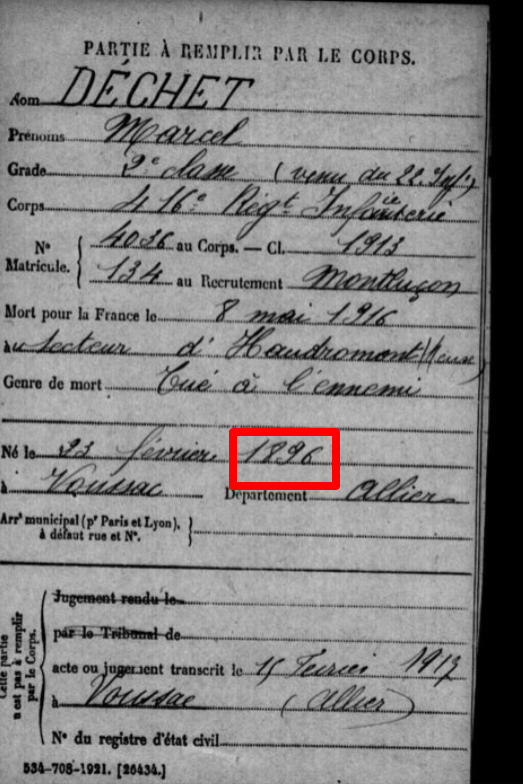 PARTIE À REMPLIR PAR LE CORPS.
Nom DÉCHET
Prénoms Marcel
Grade 2e classe (venu du 22e Inf.ie)
Corps 416e Régt Infanterie
No Matricule. { 4036 au Corps. — Cl. 1913
134 au Recrutement Montluçon
Mort pour la France le 8 mai 1916
au secteur d'Haudromont (Meuse)
Genre de mort Tué à l'ennemi
Né le 23 février 1896
à Voussac Département Allier
Arrt municipal (pr Paris et Lyon), à défaut rue et No. }
Cette partie n'est pas à remplir par le Corps.
Jugement rendu le
par le Tribunal de
acte ou jugement transcrit le 15 Février 1917
à Voussac (Allier)
No du registre d'état civil
534-708-1921. [26434.]